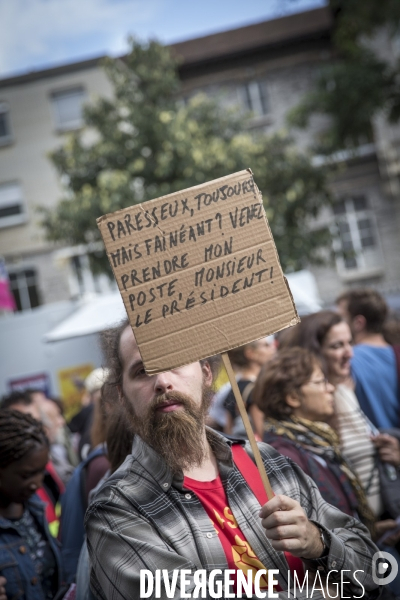 PARESSEUX, TOUJOURS
MAIS FAINÉANT? VENEZ
PRENDRE MON
POSTE, MONSIEUR
LE PRÉSIDENT!
DIVERGENCE IMAGES